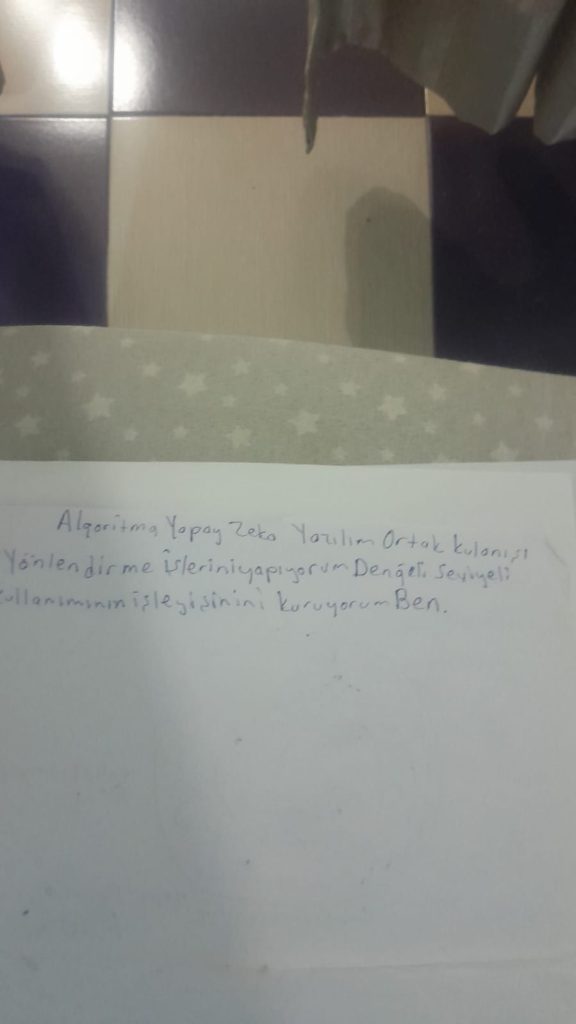 Algoritma Yapay Zeka Yazılım Ortak kulanışı
Yönlendirme İşleriniyapıyorum Dengeli Seviyeli
kullanımının işleyişinini koruyorum Ben.